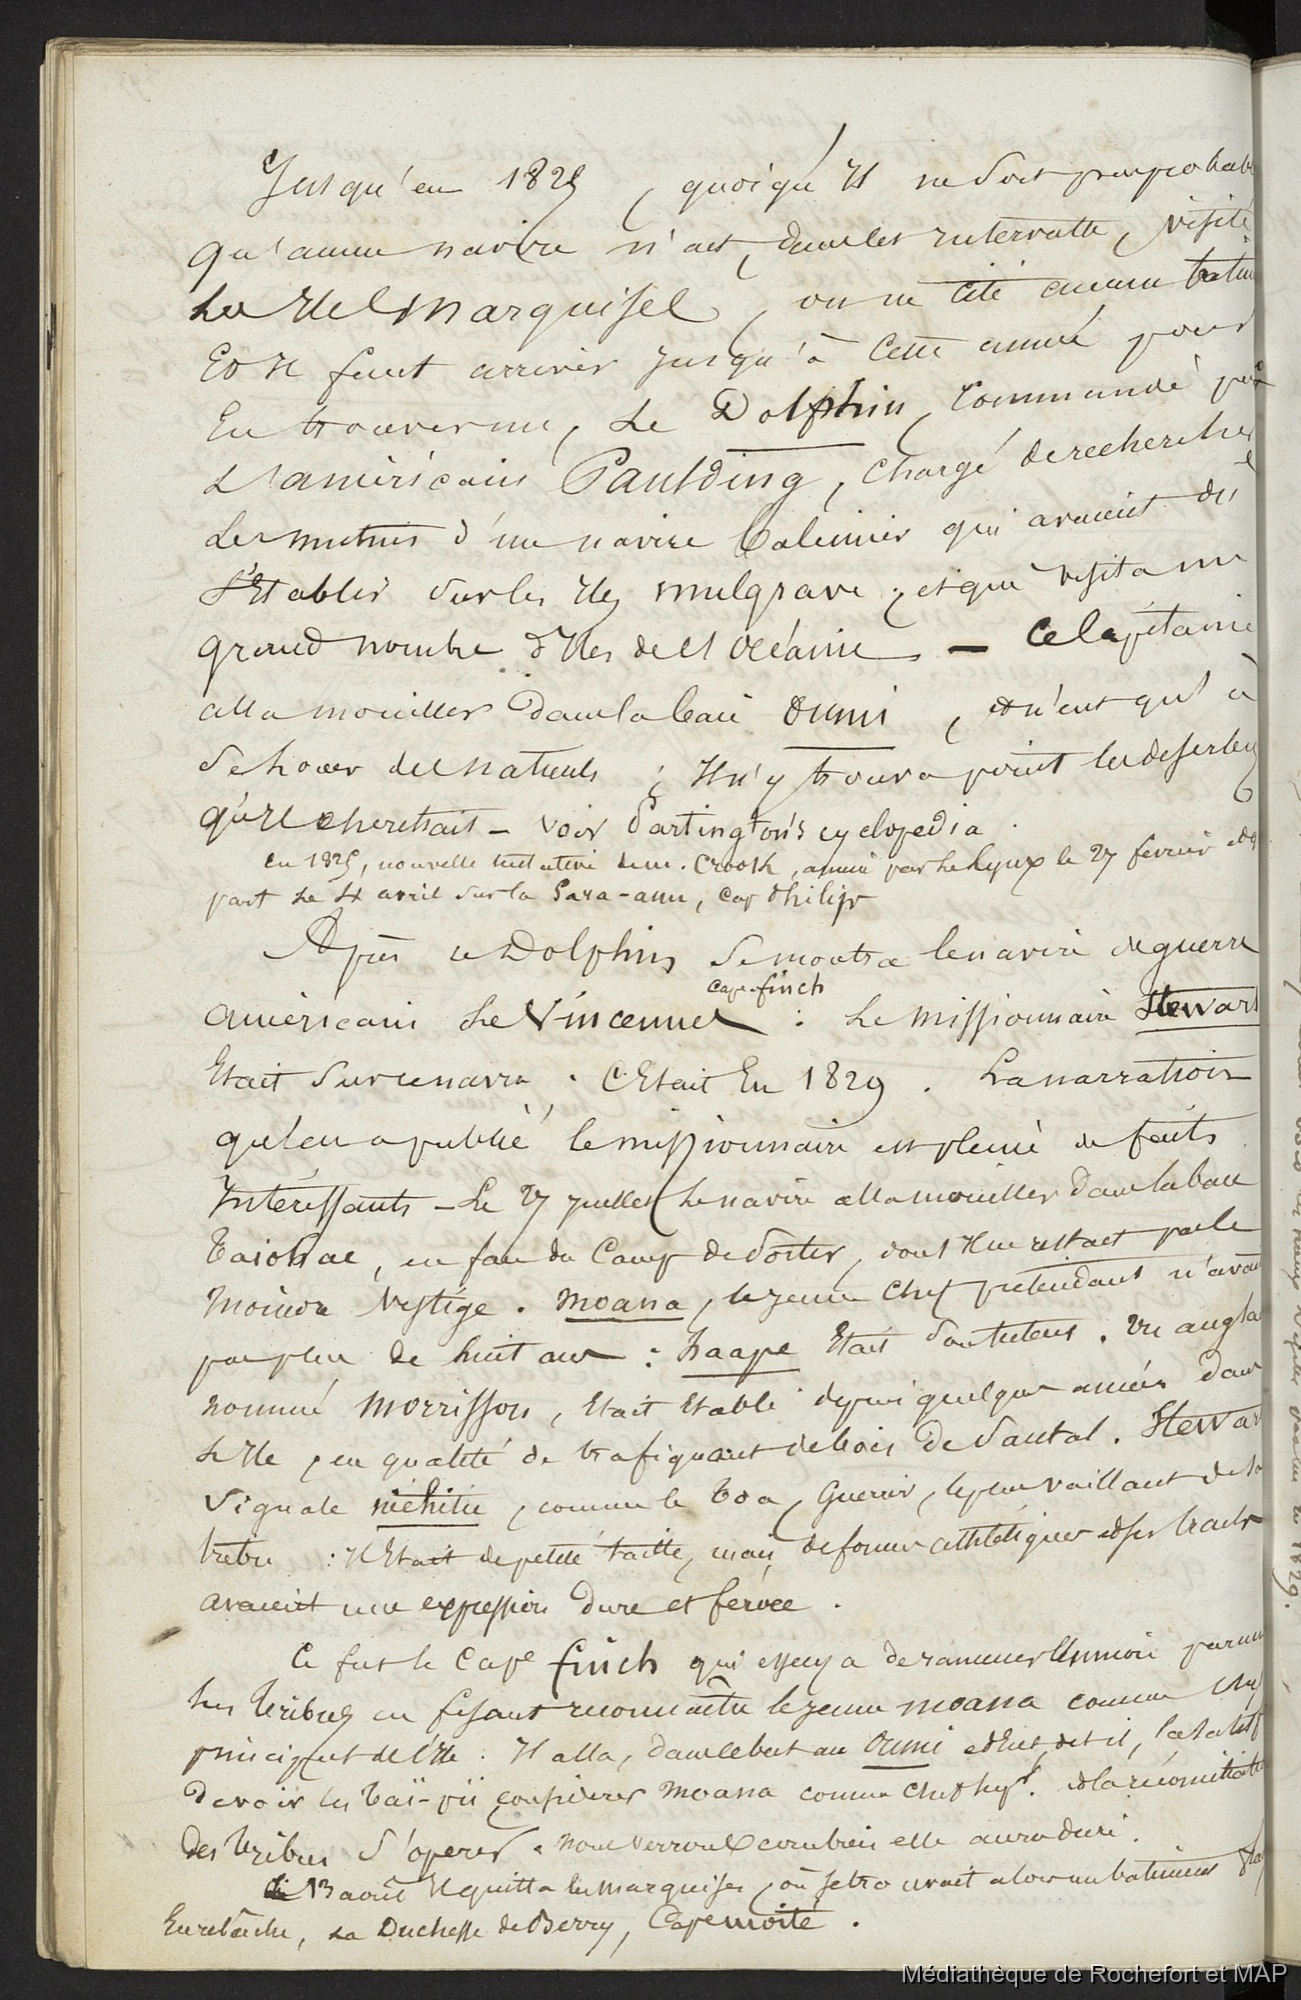 Jusqu'en 1825, quoiqu'il ne soit pas probable
qu'aucun navire n'ait, dans les intervalle, visité
les Iles Marquises, on ne cité aucun batim
Et il faut arriver jusqu'à cette année pour
En trouver un, Le Dolphin, commandé par
L'américain Paulding, chargé de rechercher
Les mutins d'un navire baleinier qui avaient dû
S'Etablir sur les Iles mulgrave, et qui visita un
grand nombre d'Iles de l'océanie. — Ce Capitaine
alla mouiller dans la baie Oumi, et n'eut qu'à
se louer des naturels ; Il n'y trouva point les deserteurs
qu'il cherchait — voir Partington's cyclopedia.
en 1825, nouvelle tentative de m. Crook, amené par le Lynx le 27 fevrier
part Le 4 avril sur la Sara-ann, cap Philip
Après Le Dolphin se montra le navire de guerre
cape finch
américain Le Vincennes : Le missionnaire Stewart
Etait sur ce navire. C'Etait En 1829. La narration
qu'en a publié le missionnaire est pleine de faits
Intéressants — Le 27 juillet Le navire alla mouiller dans la baie
Taiohae, en face du Camp de Porter, dont Il ne restait pas le
moindre Vestige. Moana, le jeune chef prétendant n'avait
pas plus de huit ans : haape Etait son tuteur. Un anglais
nommé Morrisson, Etait Etabli depuis quelques années dans
L'Ile, en qualité de trafiquant de bois De Santal. Stewart
signale nichitu, comme le Toa, Guerrier, le plus vaillant de la
tribu : Il Etait de petite taille, mais de formes athlétiques et ses traits
avaient une expression dure et féroce.
Ce fut le Cape finch qui essaya de ramener l'union parmi
les Tribus en fesant reconnaître le jeune moana comme chef
principal de l'Ile. Il alla, dans ce but au Oumi et Eut, dit il, la satisf
De voir les Taï-pii considerer Moana comme chef leg. et la réconciliation
Des Tribus s'opérer. Nous verrons combien elle aura duré.
Le 13 août Il quitta les marquises, où se trouvait alors un batiment
En relache, La Duchesse de Berry, Cape moité.
Médiathèque de Rochefort et MAP